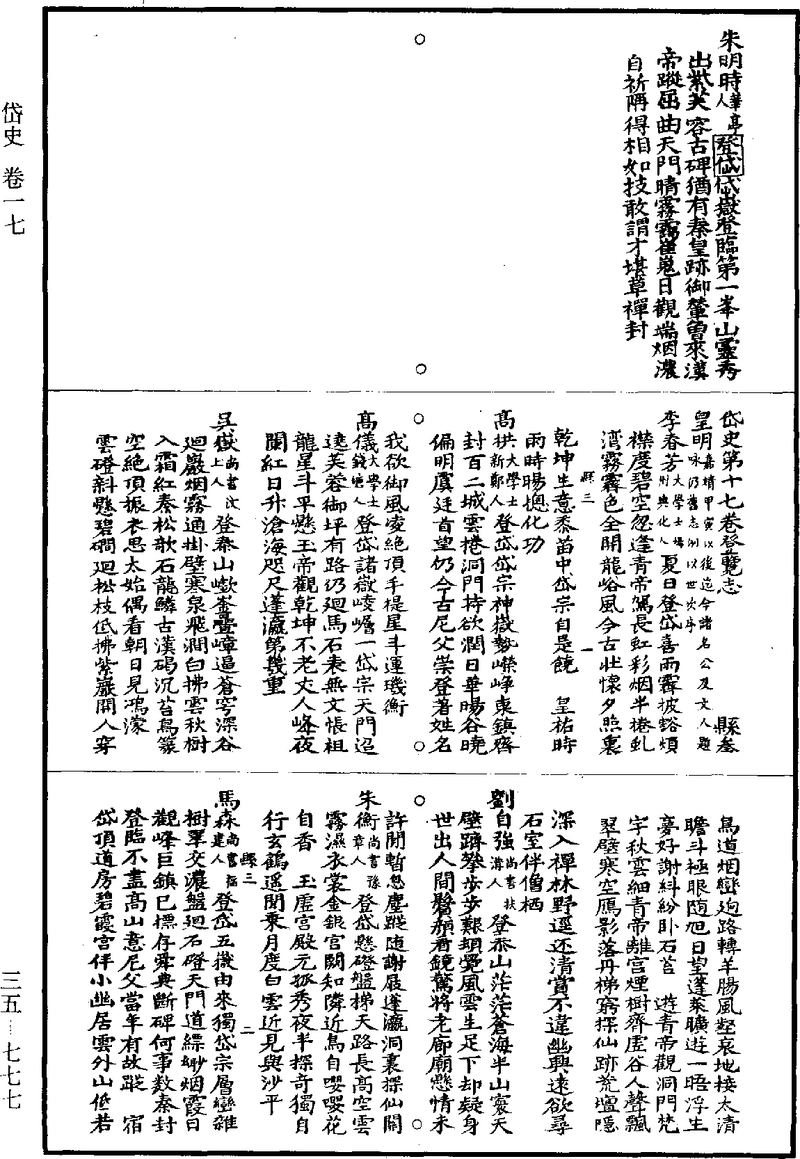 岱史 卷一七
三五—七七七
朱明時華亭人登岱岱嶽登臨第一峯山靈秀
出紫芙容古碑猶有秦皇跡御輦曾來漢
帝蹤屈曲天門晴霧靄崔嵬日觀端烟濃
自祈隋得相如技敢謂才堪草禪封
岱史第十七卷登覽志 縣叁
皇明嘉靖甲寅以後迄今諸名公及文人題咏仍舊志例以世次序
李春芳大學士興化人夏日登岱喜雨霽披谿煩
襟度碧空忽逢青帝駕長虹彩烟半捲虬
湾霧靄色全開龍峪風今古壯懷夕照裏
縣三 一
乾坤生意黍苗中岱宗自是饒 皇祐時
雨時暘摠化功
高拱大學士新鄭人登岱岱宗神嶽勢嶸崢東鎮齊
封百二城雲捲洞門持欲潤日華暘谷曉
偏明虞廷首望仍今古尼父崇登著姓名
我欲御風凌絶頂手提星斗運璣衡
高儀大學士錢塘人登岱諸嶽崚嶒一岱宗天門迢
遶芙蓉御坪有路仍迴馬石表無文悵祖
龍星斗平懸玉帝觀乾坤不老丈人峰夜
闌紅日升滄海咫尺蓬瀛第幾重
吳嶽尚書汶上人登泰山巘崟疊嶂逼蒼穹深谷
迴巖烟霧通掛壁寒泉飛澗白拂雲秋樹
入霜紅秦松欹石龍鱗古漢碣沉苔鳥篆
空絶頂振衣思太始偶看朝日見鴻濛
雲磴斜懸碧磵迴松枝低拂紫巖開人穿
鳥道烟巒迥路轉羊腸風壑哀地接太清
瞻斗極眼随旭日望蓬萊曠遊一晤浮生
夢好謝紛紛卧石苔 遊青帝觀洞門梵
宇秋雲細青帝離宫煙樹齊虚谷人聲飄
翠壁寒空鴈影落丹梯窮探仙跡荒壇隱
深入禪林野逕还清賞不違幽興遠欲尋
石室伴僧栖
劉自強尚書扶溝人登泰山茫茫蒼海半山寰天
壁躋攀步步艱頭覺風雲生足下却疑身
世出人間鬢顏看鏡驚將老廊廟懸情未
許閒暫忽塵蹤随謝屐蓬瀛洞裏探仙關
朱衡尚書萬安人登岱懸磴盤梯天路長高空雲
霧濕衣裳金銀宫闕知隣近鳥自嚶嚶花
自香 玉虚宫殿元孤秀夜半探奇獨自
行玄鶴遥聞乗月度白雲近見與沙平
縣三 二
馬森尚書福建人登岱五嶽由來獨岱宗層巒雜
樹翠交濃盤迴石磴天門道縹緲烟霞日
觀峰巨鎮已標存舜典斷碑何事数秦封
登臨不盡高山意尼父當年有故蹤 宿
岱頂道房碧霞宫伴小幽居雲外山低若